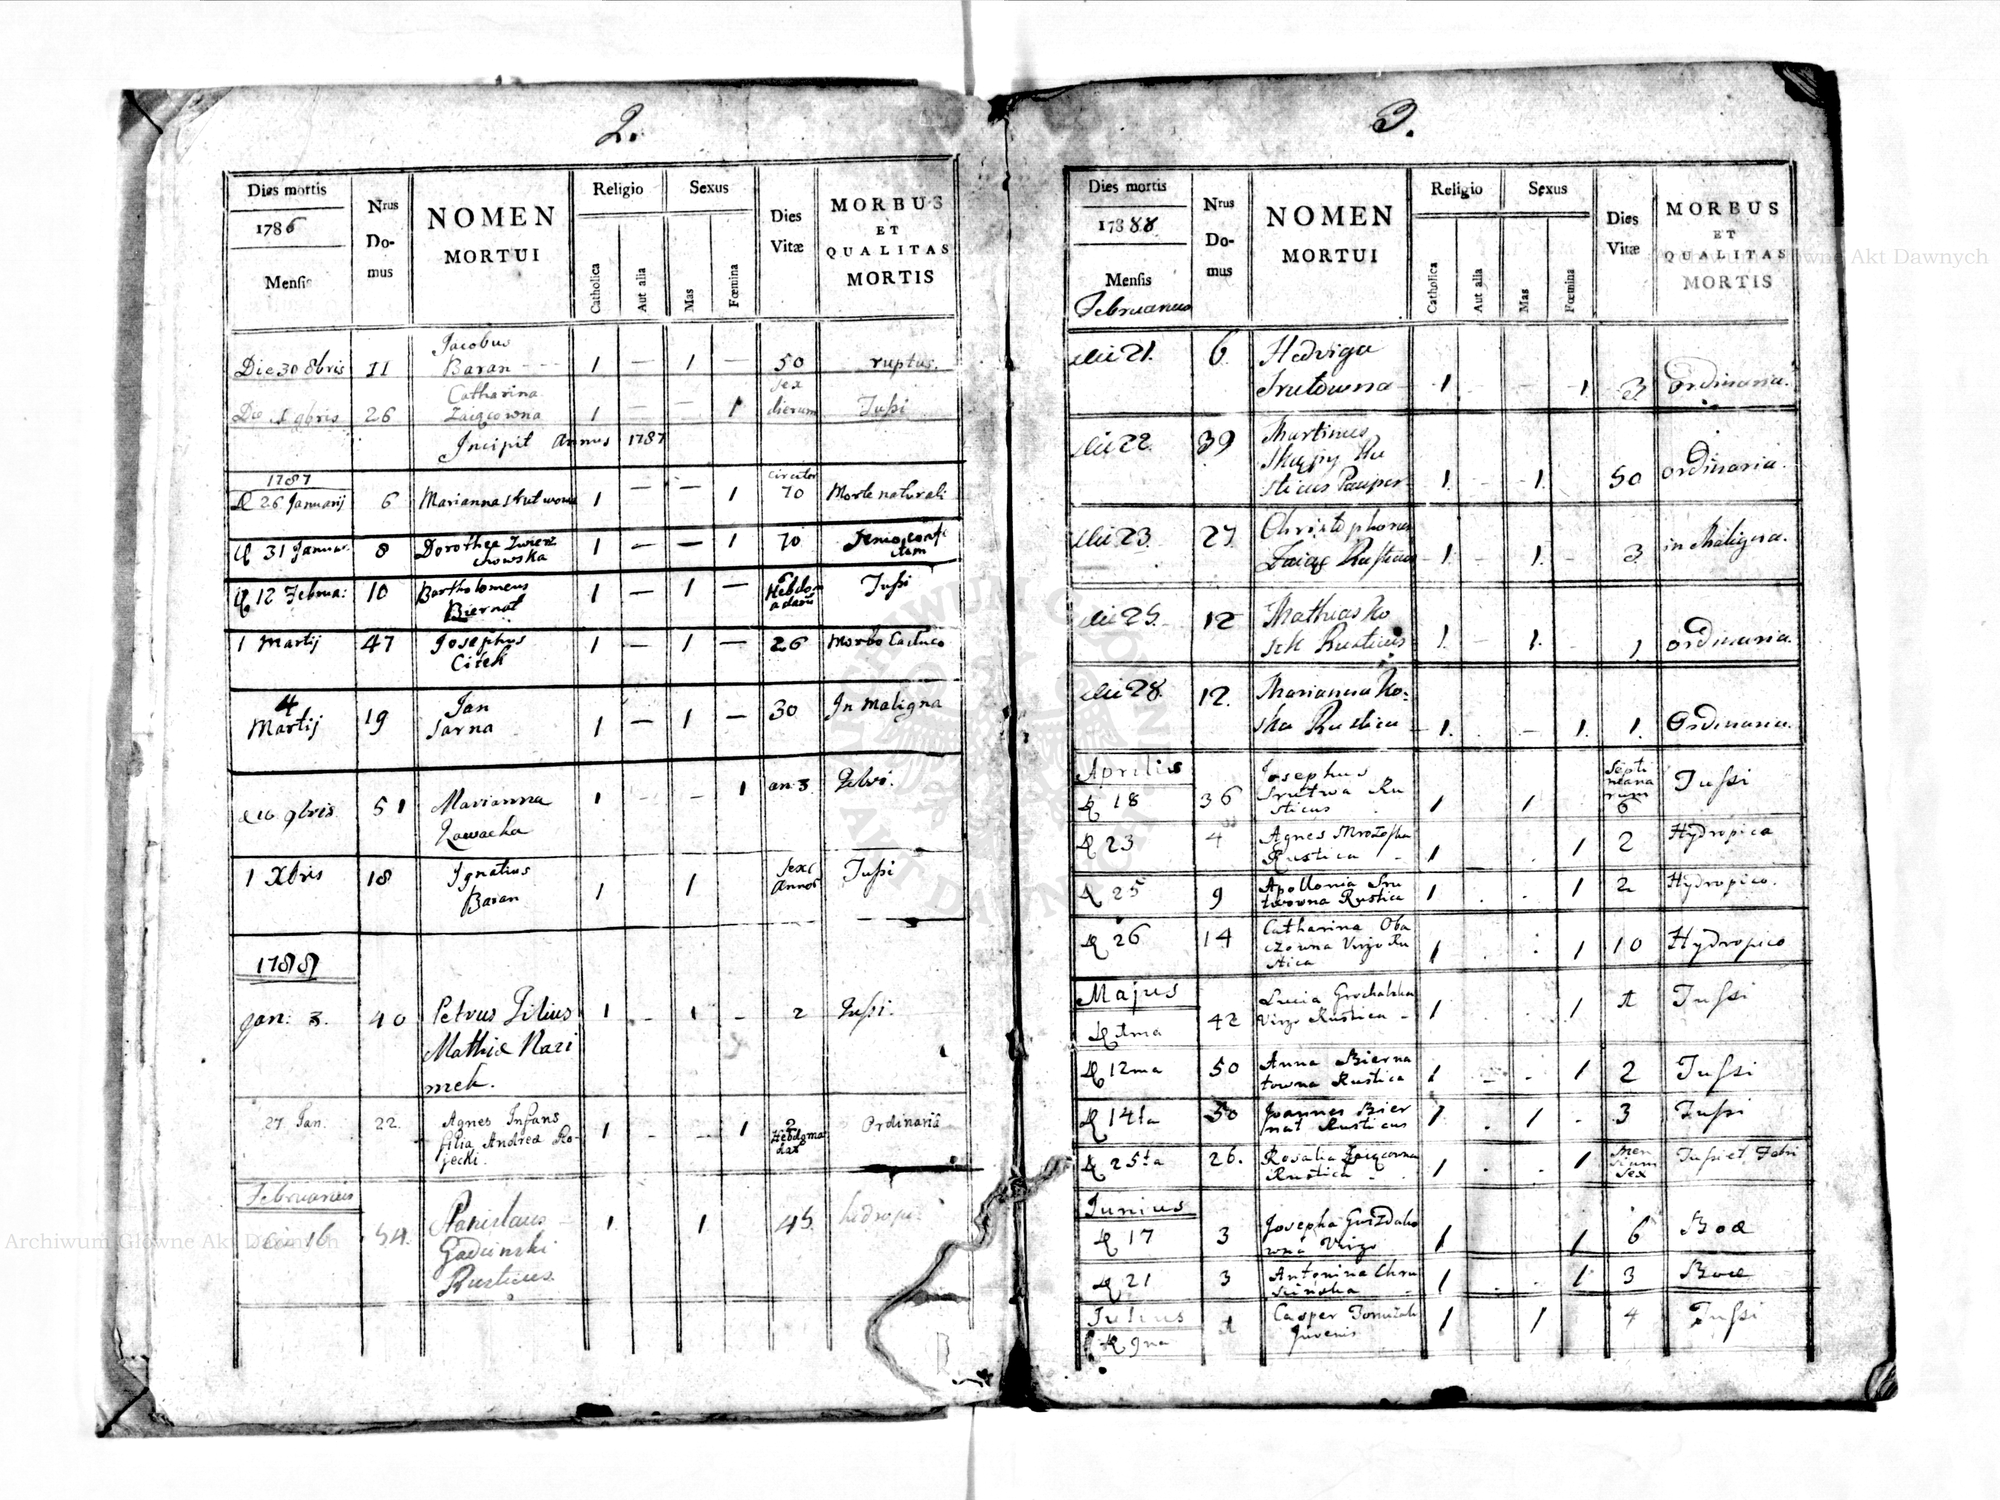 2.
Dies mortis
1786
Mensis
Nrus
Do-
mus
NOMEN
MORTUI
Religio
Catholica
Aut alia
Sexus
Mas
Fœmina
Dies
Vitæ
MORBUS
ET
QUALITAS
MORTIS
Jacobus
Die 30 8bris 11 Baran 1 — 1 — 50 ruptus.
Catharina sex
Die 1 9bris 26 Zaiącowna 1 — — 1 dierum Tussi
Incipit Annus 1787
1787 circiter
26 Januarij 6 Marianna 1 — — 1 70 Morte naturali
31 Januar. 8 Dorothea 1 — — 1 70
chowska
12 Februa: 10 Bartholomeus 1 — 1 — 6 Hebdom Tussi
Biernat adarū
1 Martij 47 Josephus 1 — 1 — 26 Morbo Caduco
4 Jan
Martij 19 Sarna 1 — 1 — 30 In Maligna
9bris 51 Marianna 1 - - 1 an: 3
1 Xbris 18 Ignatius 1 1 Sex Tussi
Baran Annor
1788
Jan: 3. 40 Petrus Filius 1 - 1 - 2 Tussi.
Mathiæ Kazi
mek.
27 Jan. 22 Agnes Infans 1 - - 1 2 Ordinaria
filia Andreæ Ro- Hebdoma
jecki. dar
Februarius
die 16 54. Stanislaus 1 1 45
Rusticus.
3.
Dies mortis
1788
Mensis
Februarius
Nrus
Do-
mus
NOMEN
MORTUI
Religio
Catholica
Aut alia
Sexus
Mas
Fœmina
Dies
Vitæ
MORBUS
ET
QUALITAS
MORTIS
die 21. 6 Hedviga
Srutowna 1 - - 1 3 ordinaria.
die 22. 39 Martinus
Skąpy Ru
sticus Pauper 1. - 1. 50 ordinaria.
die 23. 27 Christophorus
Zaiąc Rusticus 1. - 1. - 3 in Maligna.
die 25. 12 Mathias Ko
Rusticus 1. - 1. - 1 ordinaria.
die 28. 12. Marianna Ko-
ska Rustica 1. - 1. 1. Ordinaria.
Aprilis Josephus Septi
18 36 Srutwa Ru 1 1 manarum Tussi
sticus 6
23 4 Agnes 1 1 2 Hydropica
Rustica
25 9 Apollonia Sru 1 . . 1 2 Hydropico.
twowna Rustica
26 14 Catharina Oba 1 . . 1 10 Hydropico
Virgo Ru
stica
Majus Lucia Grochalska 1 . . 1 1 Tussi
1ma 42 Virgo Rustica
12ma 50 Anna Bierna 1 - . 1 2 Tussi
towna Rustica
14ta 50 Joannes Bier 1 . 1 . 3 Tussi
nat Rusticus
25ta 26. Rosalia Zaiącowna 1 . . 1 Men Tussi et Febri
Rustica sium
Sex
Junius
17 3 Josepha 1 . . 1 6
wna Virgo
21 3 Antonina Chru 1 . . 1 3
scińska
Julius Casper 1 1 4 Tussi
9na 1 Juvenis
Archiwum Główne Akt Dawnych
Archiwum Główne Akt Dawnych
ARCHIWUM GŁÓWNE AKT DAWNYCH